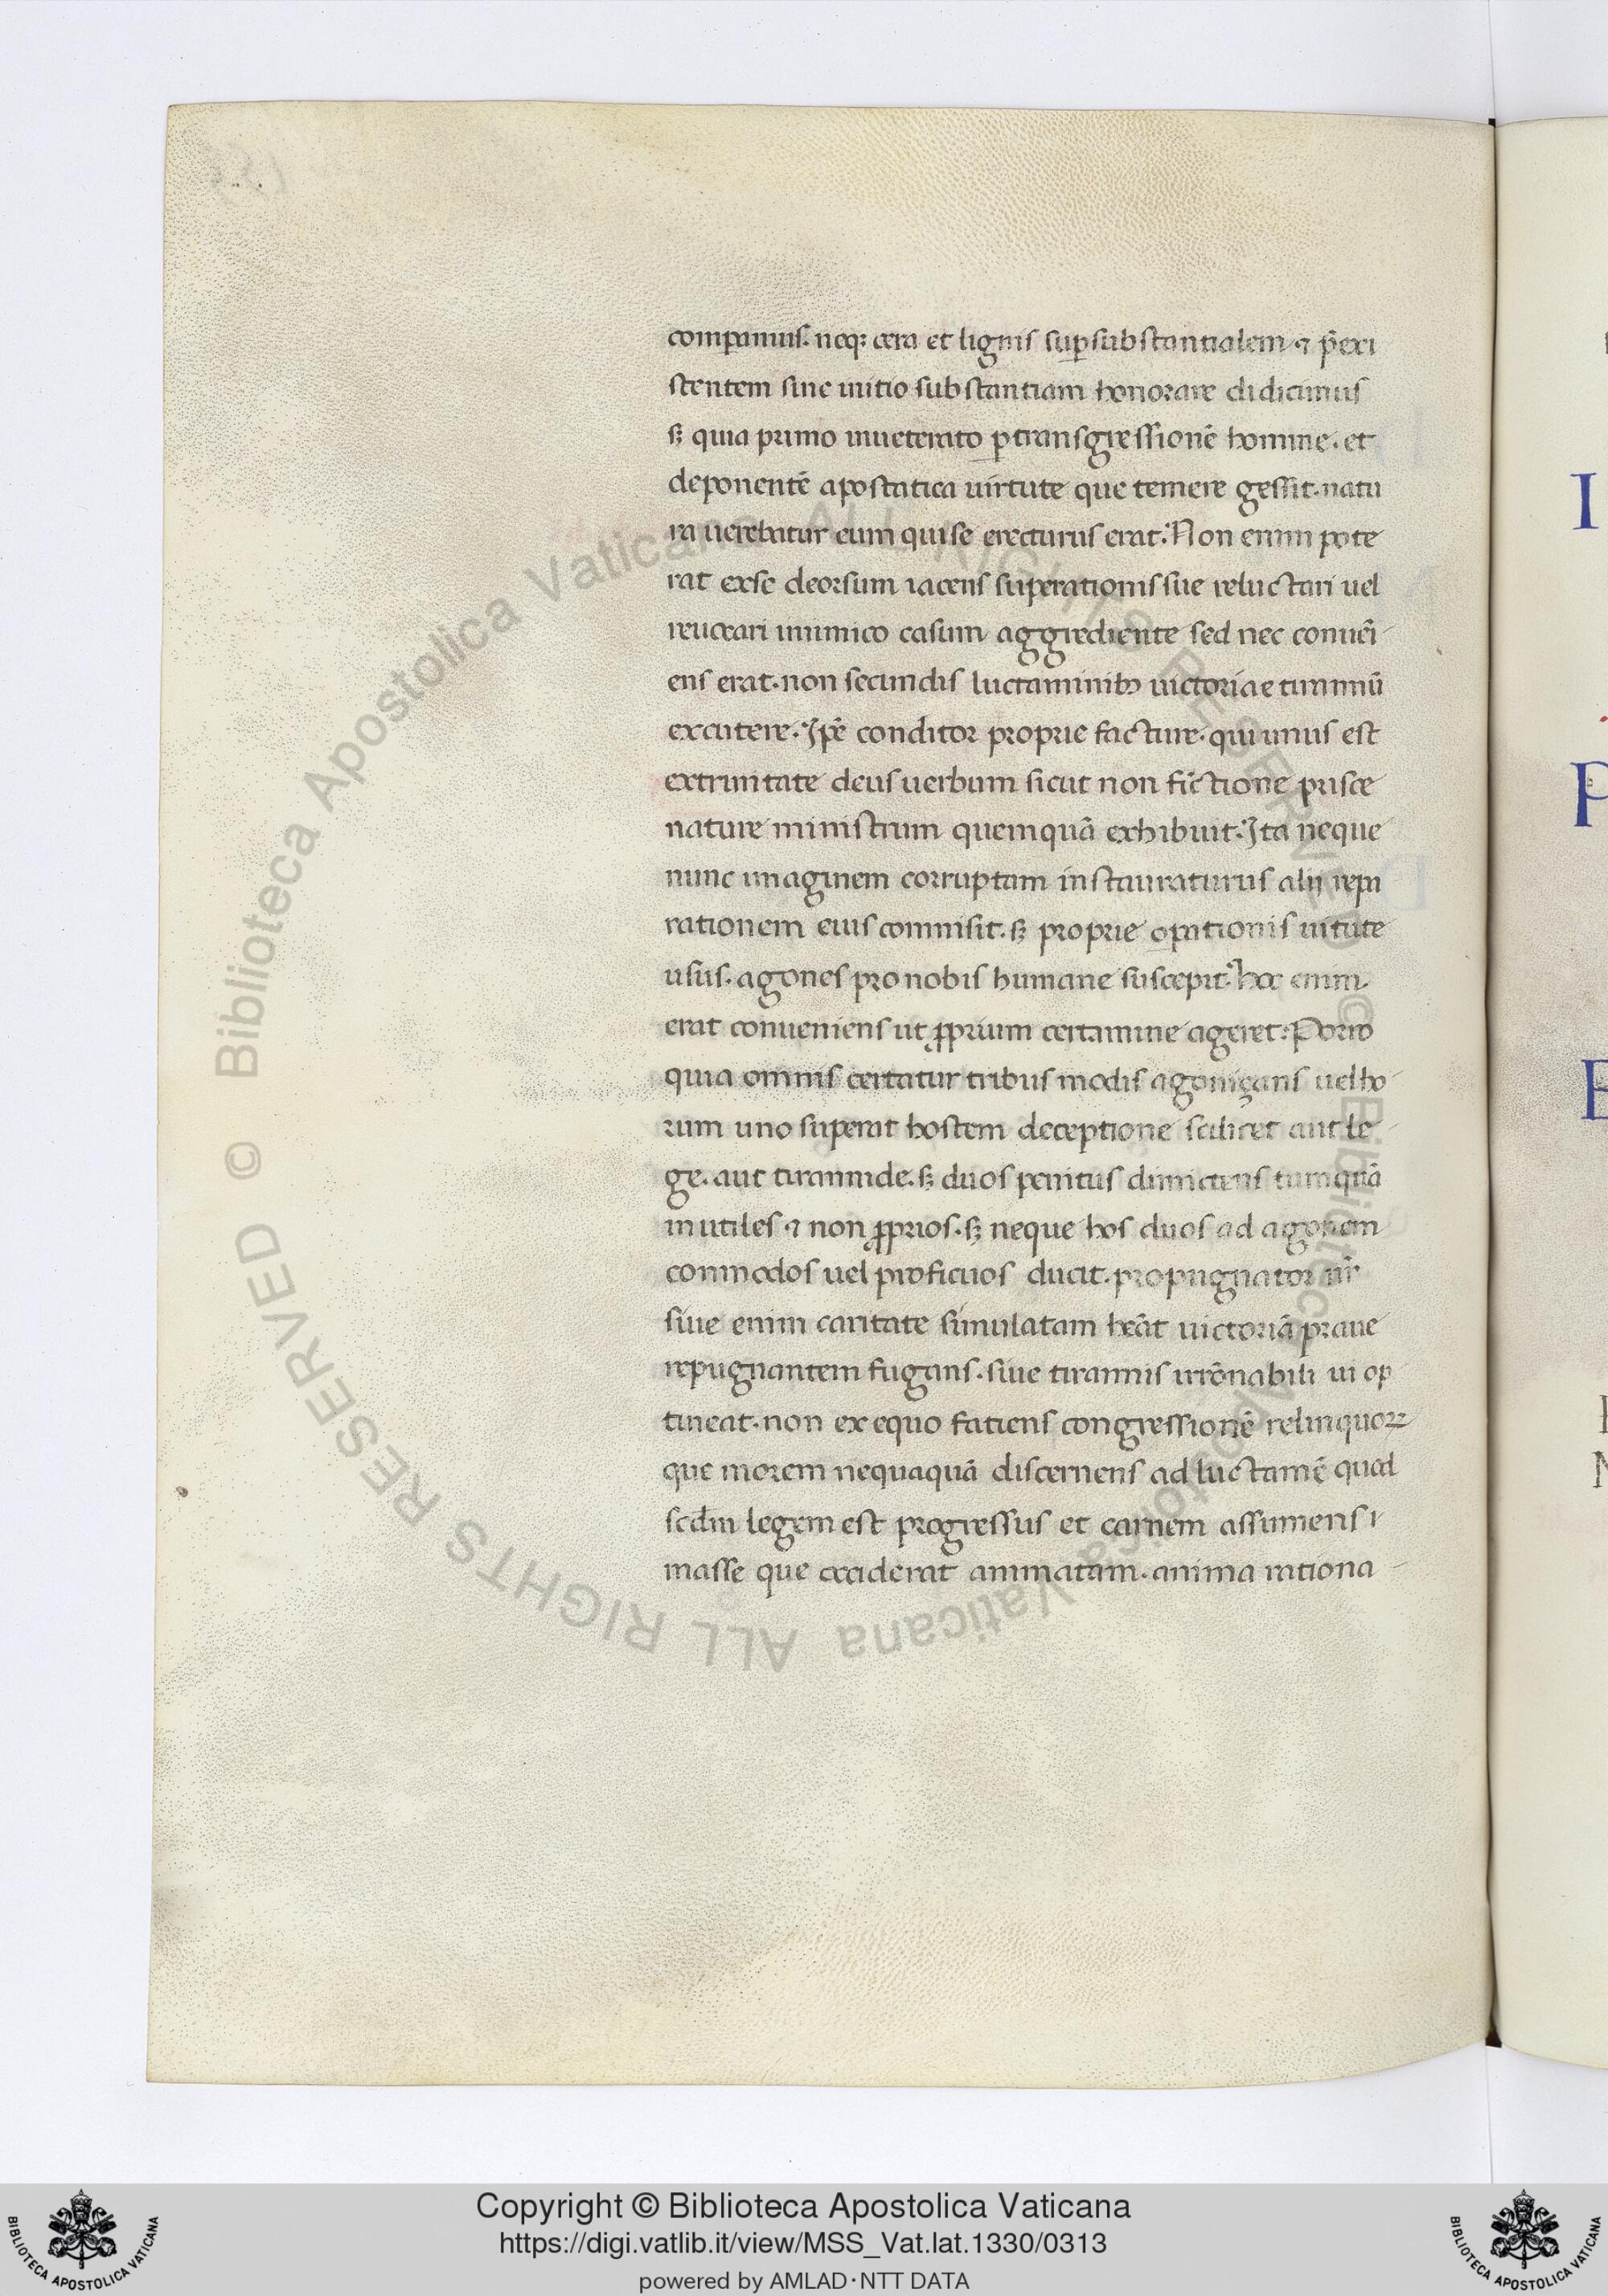 comparamus. neq: cera et lignis supsubstantialem ⁊ p̄exi
stentem sine initio substantiam honorare didicimus
sꝫ quia primo inueterato ꝑtransgressionē homine. et
deponentē apostatica uirtute que temere gessit. natu
ra uerebatur eum qui se erecturus erat: Non enim pote
rat exse deorsum iacens superationis sue reluctari uel
reuocari inimico casum aggrediente sed nec conuēi
ens erat. non secundis luctaminibꝫ uictoriae
excutere. Ip̄e conditor proprie facture. qui unus est
extrinitate deus uerbum sicut non fictione prisce
nature ministrum quemquā exhibuit. Ita neque
nunc imaginem corruptam instauraturus alij repa
rationem eius commisit. sꝫ proprie oꝑationis uitute
usus. agones pro nobis humane suscepit. hoc enim
erat conueniens ut ꝓprium certamine ageret: Porro
quia omnis certatur tribus modis agoniçans uel ho
rum uno superat hostem deceptione scilicet aut le
ge. aut tirannide. sꝫ duos penitus dimictens tamquā
inutiles ⁊ non ꝓprios. sꝫ neque hos duos ad agonem
commodos uel proficuos ducit. propugnator nr̄
siue enim caritate simulatam heāt uictoriā praue
repugnantem fugans. siue tirannis irrōnabili ui op
tineat. non ex equo fatiens congressionē relinquorꝝ
que morem nequaquā discernens ad luctamē quod
scd̄m legem est progressus et carnem assumens i
masse que exciderat animatam. anima rationa
© Biblioteca Apostolica Vaticana ALL RIGHTS RESERVED © Biblioteca Apostolica Vaticana ALL RIGHTS RESERVED
I
P
E
Copyright © Biblioteca Apostolica Vaticana
https://digi.vatlib.it/view/MSS_Vat.lat.1330/0313
powered by AMLAD·NTT DATA
BIBLIOTECA APOSTOLICA VATICANA
BIBLIOTECA APOSTOLICA VATICANA